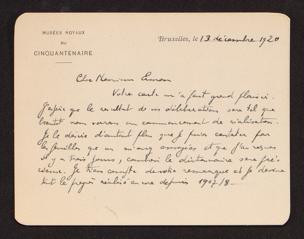 MUSÉES ROYAUX
DU
CINQUANTENAIRE
Bruxelles, le 13 décembre 1920
Cher Monsieur
Votre carte m'a fait grand plaisir.
J'espère que le résultat de vos délibérations sera tel que
bientôt nous verrons un commencement de réalisation.
Je le désire d'autant plus que je puis constater par
les feuilles que vous m'avez envoyées et que j'ai reçues
il y a trois jours, combien le dictionnaire sera
Je tiens compte de votre remarque et je
tout le progrès réalisé depuis 1907/8